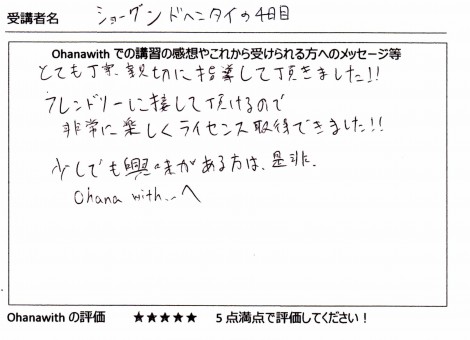 受講者名 ショーグンドヘンタイの4日目
Ohanawith での講習の感想やこれから受けられる方へのメッセージ等
とても丁寧、親切に指導して頂きました!!
フレンドリーに接して頂けるので
非常に楽しくライセンス取得できました!!
少しでも興味がある方は、是非、
Ohana with...へ
Ohanawith の評価 ★★★★★ 5点満点で評価してください!